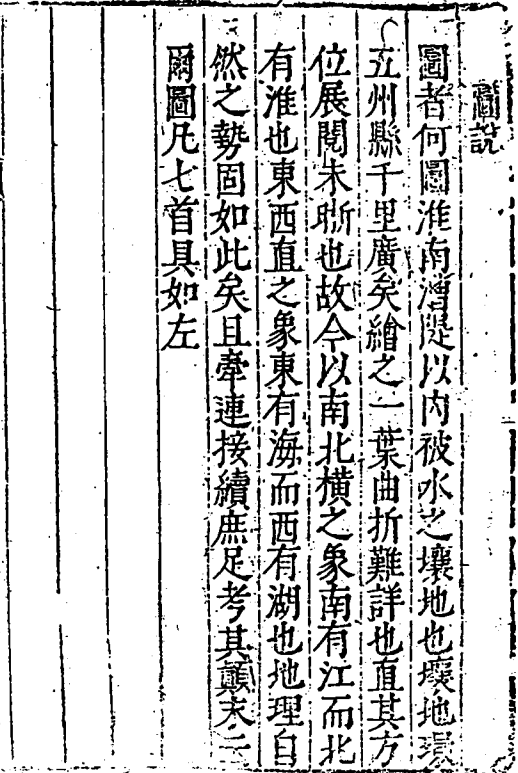 圖說
圖者何圖淮南漕隄以內被水之壤地也壤地環
五州縣千里廣矣繪之一葉曲折難詳也直其方
位展閱未晣也故今以南北橫之象南有江而北
有淮也東西直之象東有海而西有湖也地理自
然之勢固如此矣且牽連接續庶足考其顛末云
爾圖凡七首具如左